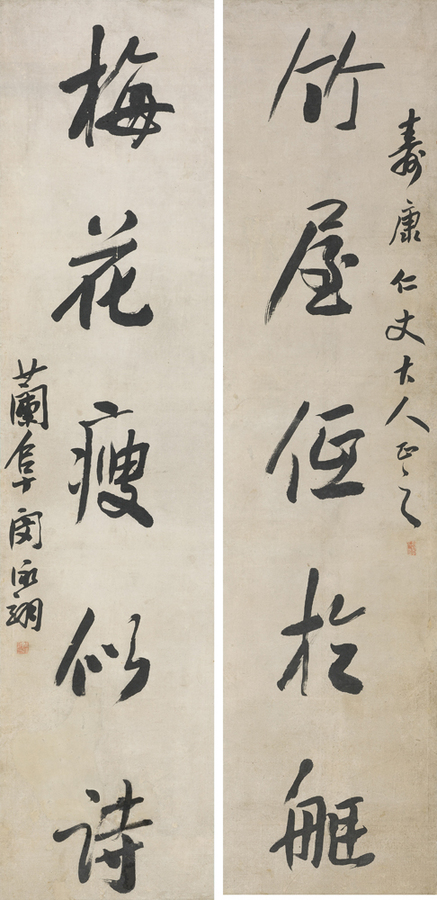 壽康仁丈大人正之
竹屋低於艇
梅花瘦似詩
蘭阜閔泳翊